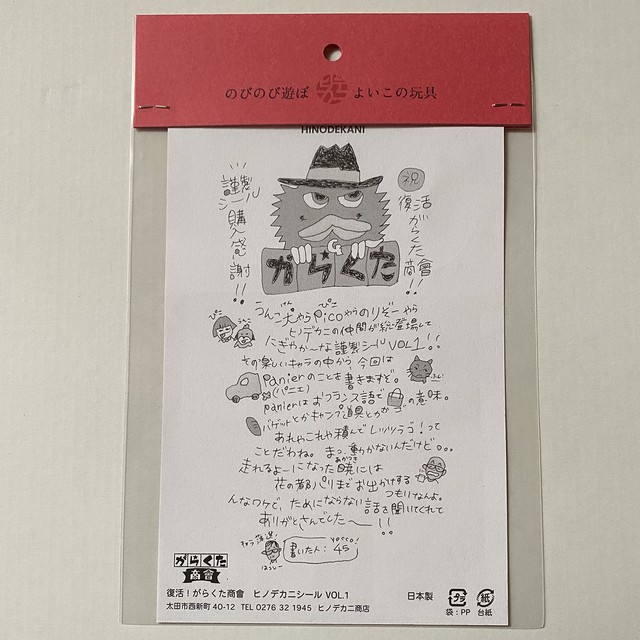 のびのび遊ぼ よいこの玩具
HINODEKANI
謹製
シール
購入感謝!!
祝
復活
がらくた商會!!
G
がらくた
うんこ犬やらPicoやらのりぞーやら
けん ぴこ
ヒノデカニの仲間が総登場して
ぴこ
にぎやか〜な謹製シールVOL1!!
その楽しいキャラの中から、今回は
Panierのことを書きますぞ。
(パニエ)
panierはおフランス語で の意味。
バゲットとかキャンプ道具とか
あれやこれや積んでレッツラゴ!って
ことだわね。まっ、動かないんだけど。。。
走れるよーになった暁には
あかつき
花の都パリまでお出かけする
つもりなんよ。
んなワケで、ためにならない話を聞いてくれて
ありがとさんでした〜!!
書いた人:45
がらくた
商會
復活!がらくた商會 ヒノデカニシール VOL.1
日本製
太田市西新町 40-12 TEL 0276 32 1945 ヒノデカニ商店
プラ
紙
袋:PP 台紙